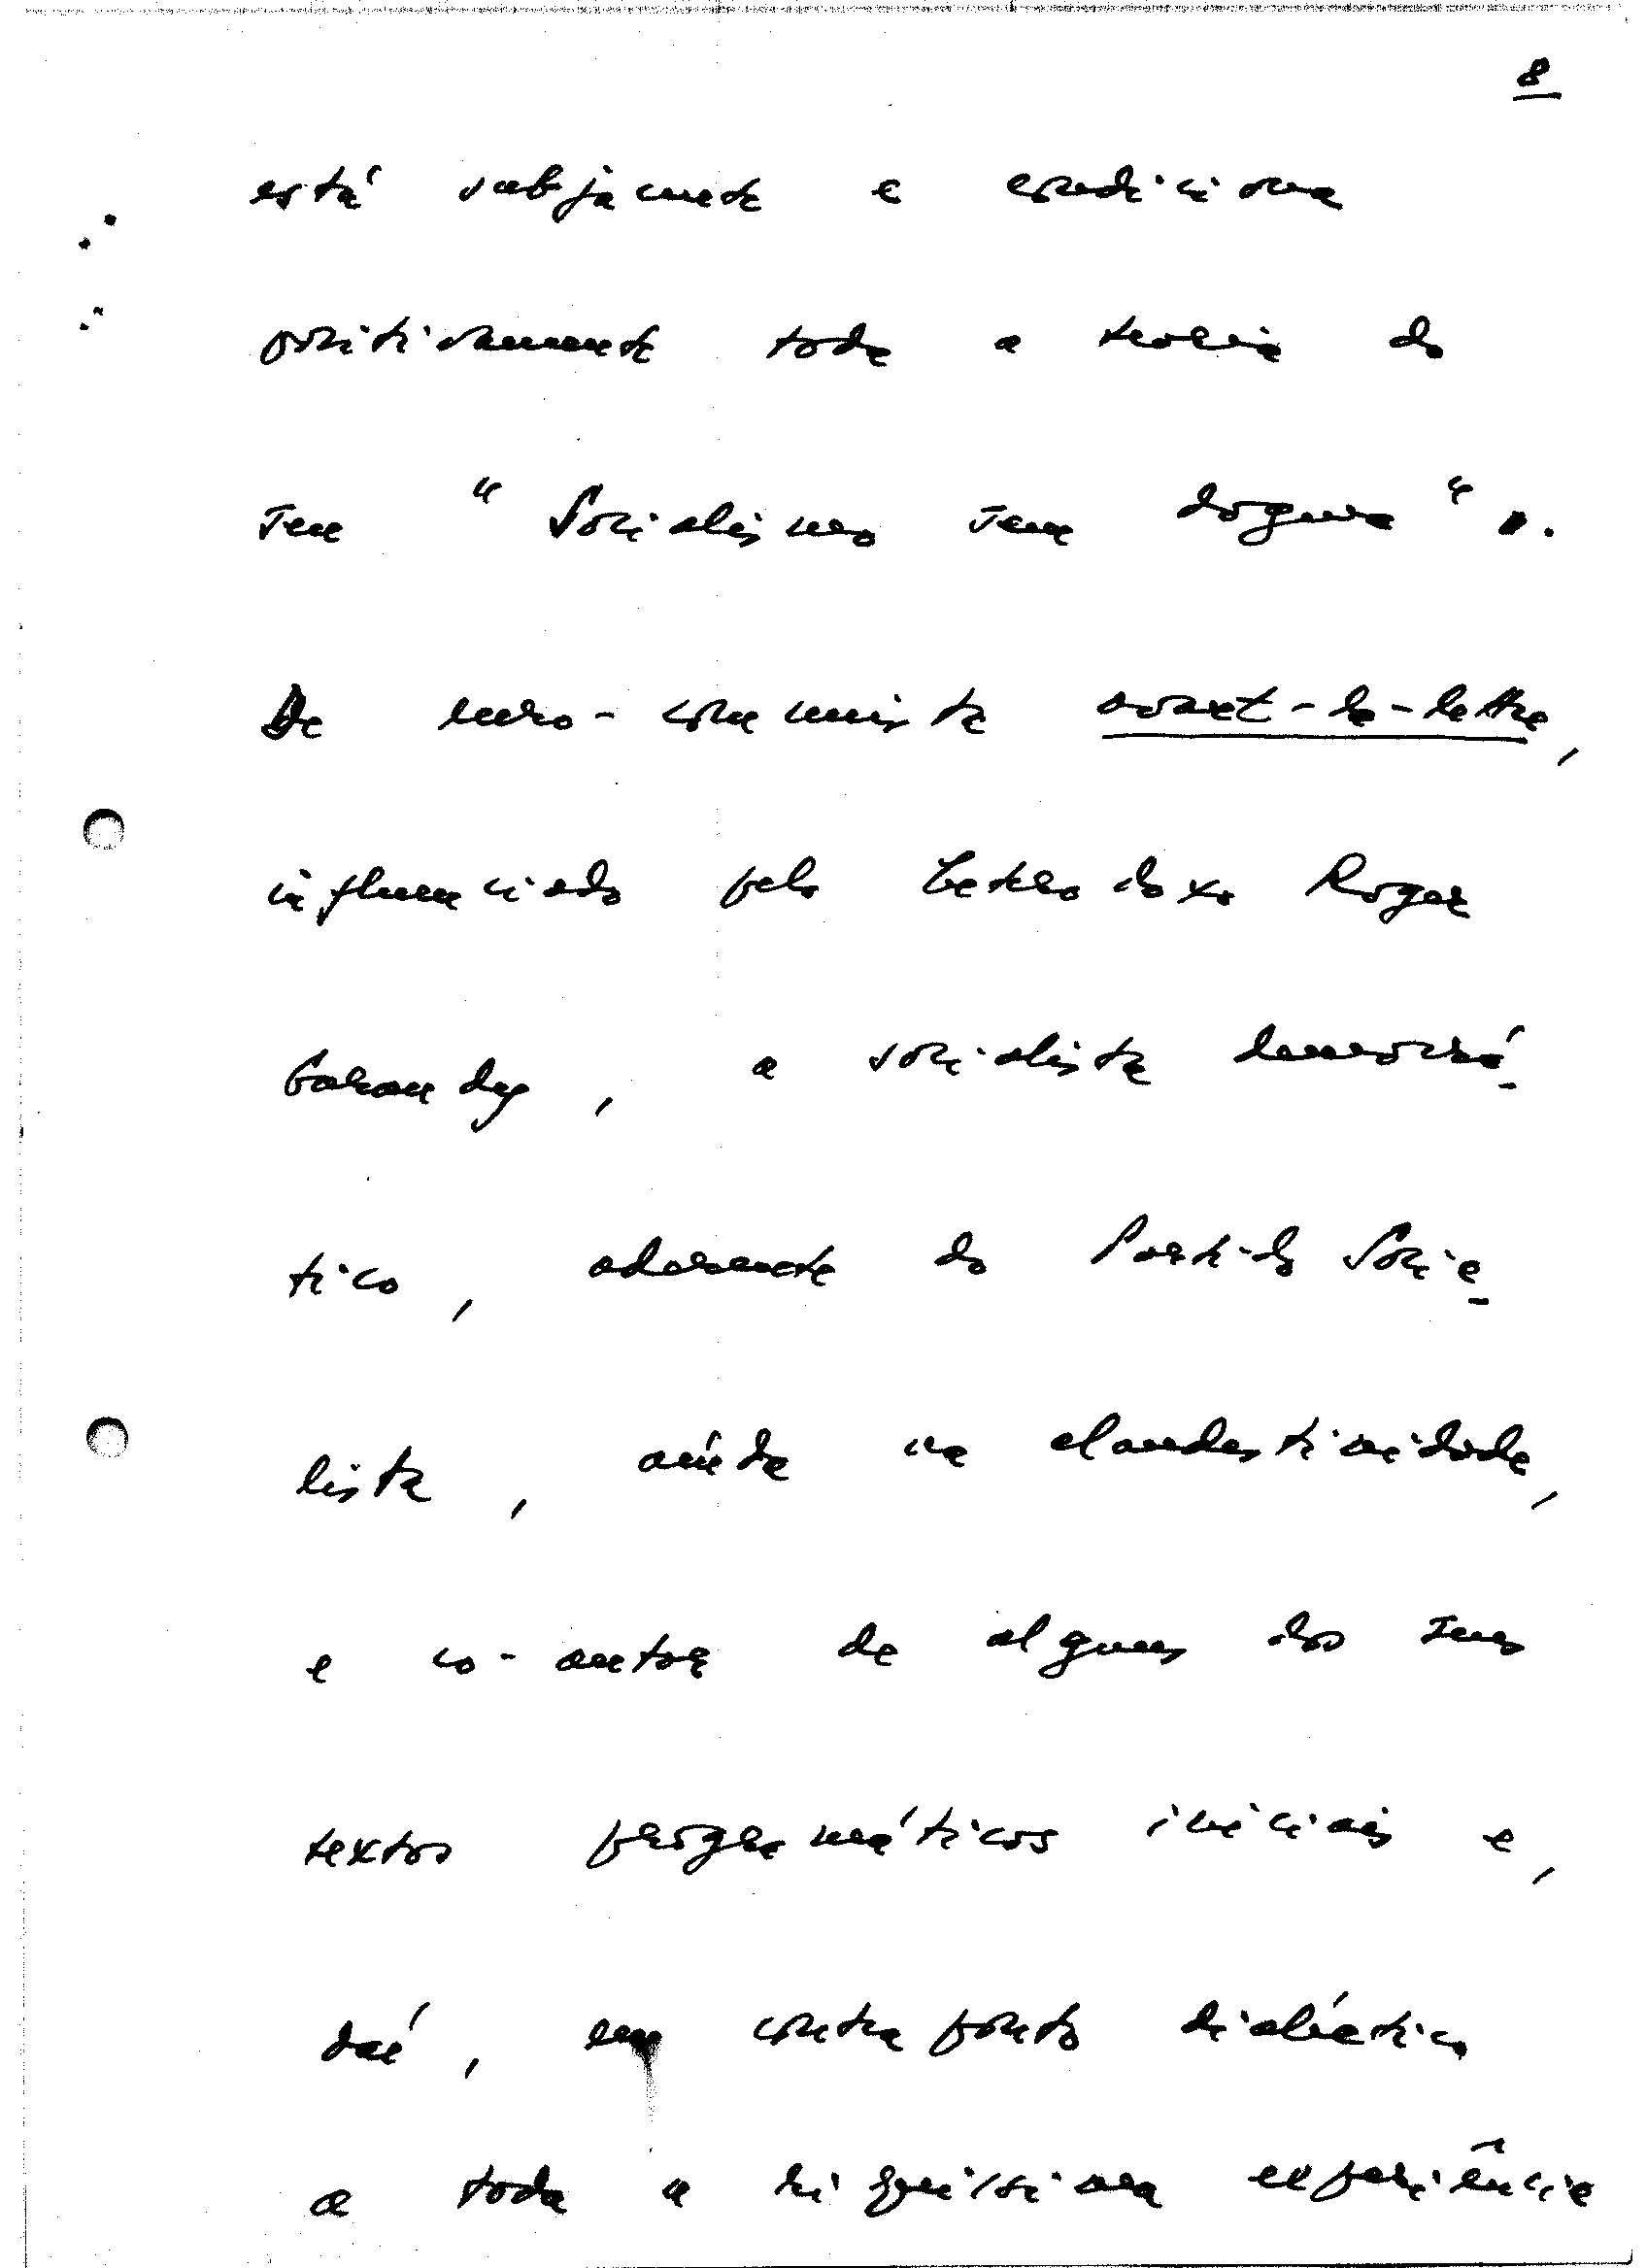 8
está subjacente e condiciona
positivamente toda a teoria do
seu "Socialismo sem dogma".
De euro-comunista avant-la-lettre,
influenciado pelo heterodoxo Roger
Garaudy, a socialista democrá-
tico, aderente do Partido Socia-
lista, ainda na clandestinidade,
e co-autor de alguns dos seus
textos programáticos iniciais e,
daí, em contraponto dialéctico
a toda a riquíssima experiência